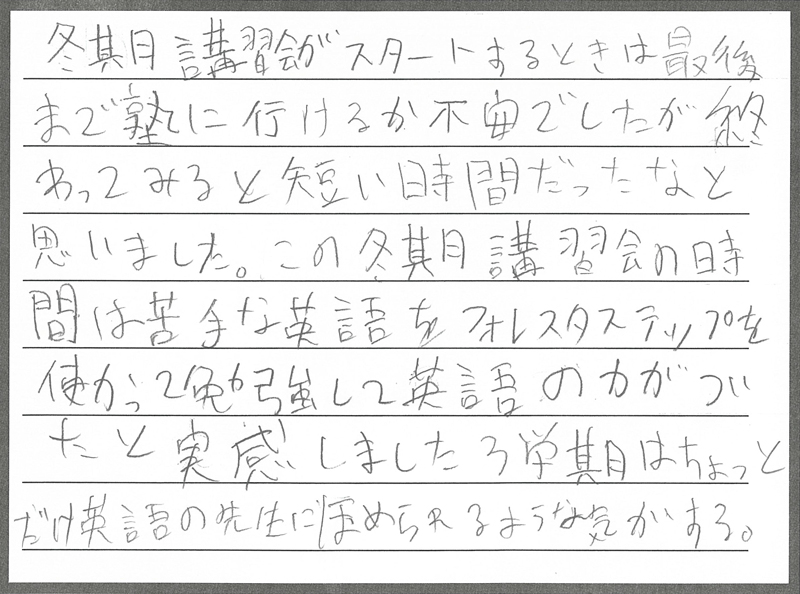 冬期講習会がスタートするときは最後
まで塾に行けるか不安でしたが終
わってみると短い時間だったなと
思いました。この冬期講習会の時
間は苦手な英語をフォレスタステップを
使かって勉強して英語の力がつい
たと実感しました3学期はちょっと
だけ英語の先生にほめられるような気がする。